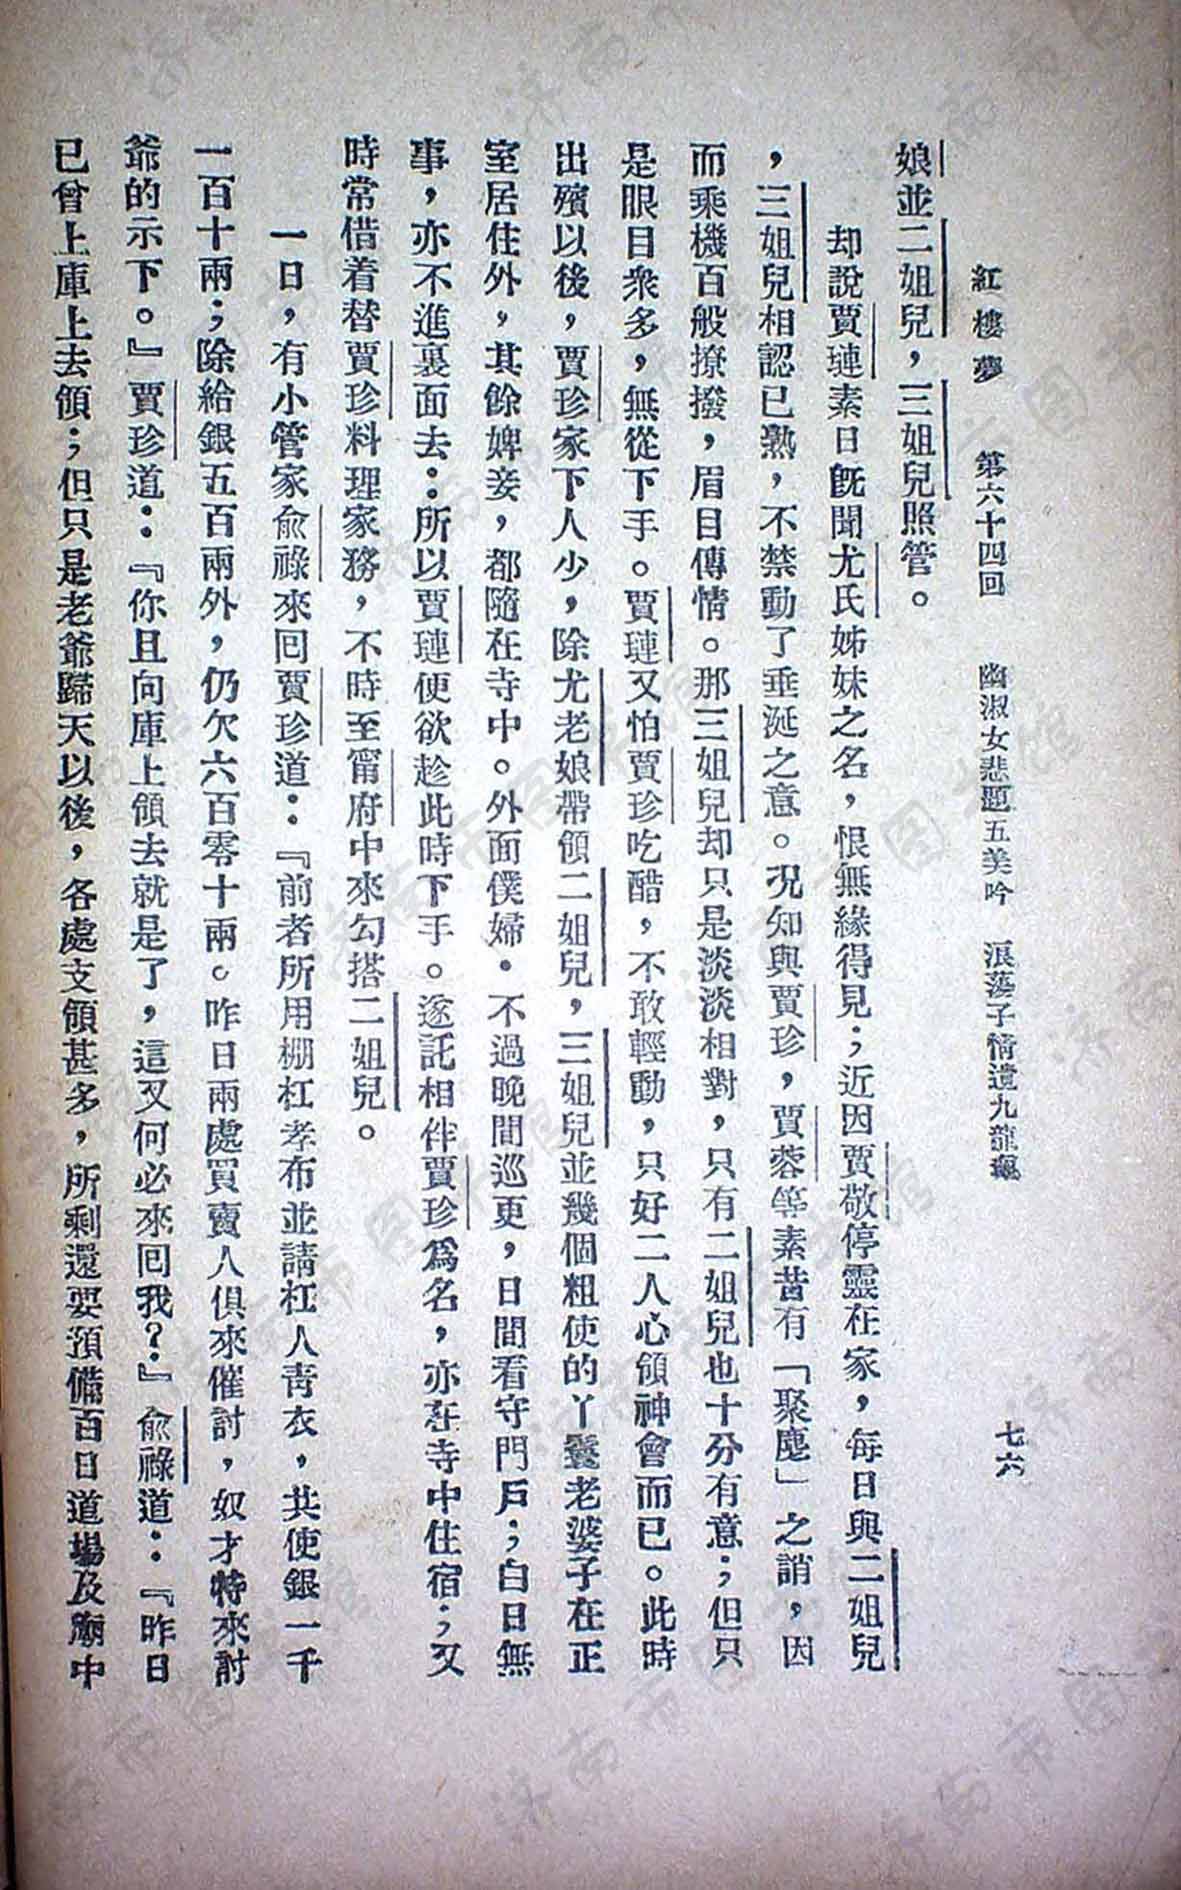 紅樓夢　第六十四回　幽淑女悲題五美吟　浪蕩子情遺九龍珮　七六
娘並二姐兒，三姐兒照管。
却說賈璉素日旣聞尤氏姊妹之名，恨無緣得見；近因賈敬停靈在家，每日與二姐兒
，三姐兒相認已熟，不禁動了垂涎之意。况知與賈珍，賈蓉等素昔有「聚麀」之誚，因
而乘機百般撩撥，眉目傳情。那三姐兒却只是淡淡相對，只有二姐兒也十分有意；但只
是眼目衆多，無從下手。賈璉又怕賈珍吃醋，不敢輕動，只好二人心領神會而已。此時
出殯以後，賈珍家下人少，除尤老娘帶領二姐兒，三姐兒並幾個粗使的丫鬟老婆子在正
室居住外，其餘婢妾，都隨在寺中。外面僕婦，不過晚間巡更，日間看守門戶；白日無
事，亦不進裏面去：所以賈璉便欲趁此時下手。遂託相伴賈珍爲名，亦在寺中住宿；又
時常借着替賈珍料理家務，不時至甯府中來勾搭二姐兒。
一日，有小管家俞祿來回賈珍道：『前者所用棚杠孝布並請杠人青衣，共使銀一千
一百十兩；除給銀五百兩外，仍欠六百零十兩。昨日兩處買賣人俱來催討，奴才特來討
爺的示下。』賈珍道：『你且向庫上領去就是了，這又何必來回我？』俞祿道：『昨日
已曾上庫上去領；但只是老爺歸天以後，各處支領甚多，所剩還要預備百日道場及廟中
濟南市图书馆